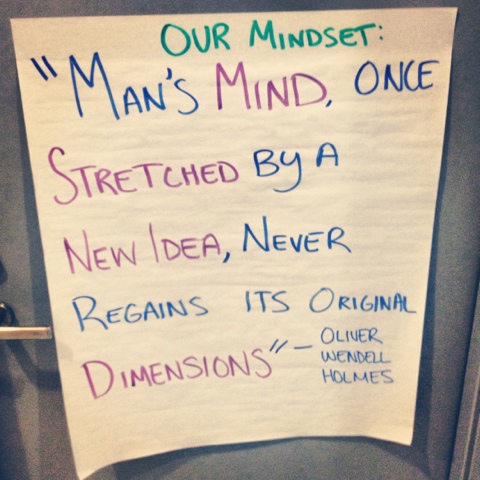 OUR MINDSET:
"MAN'S MIND, ONCE
STRETCHED BY A
NEW IDEA, NEVER
REGAINS ITS ORIGINAL
DIMENSIONS" – OLIVER
WENDELL
HOLMES